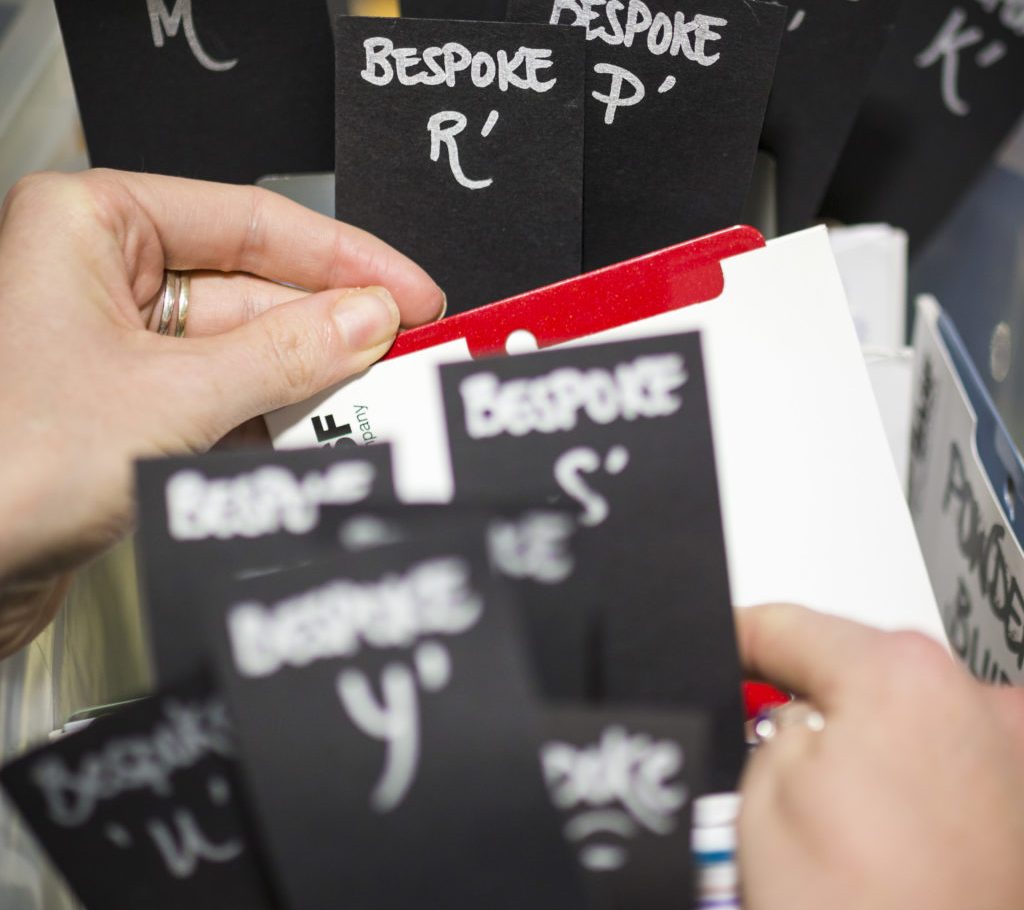 M
BESPOKE
R'
BESPOKE
P'
K'
SF
mpany
BESPOKE
S'
BESPOKE
BESPOKE
Y'
Bespoke
'U'
POWDER